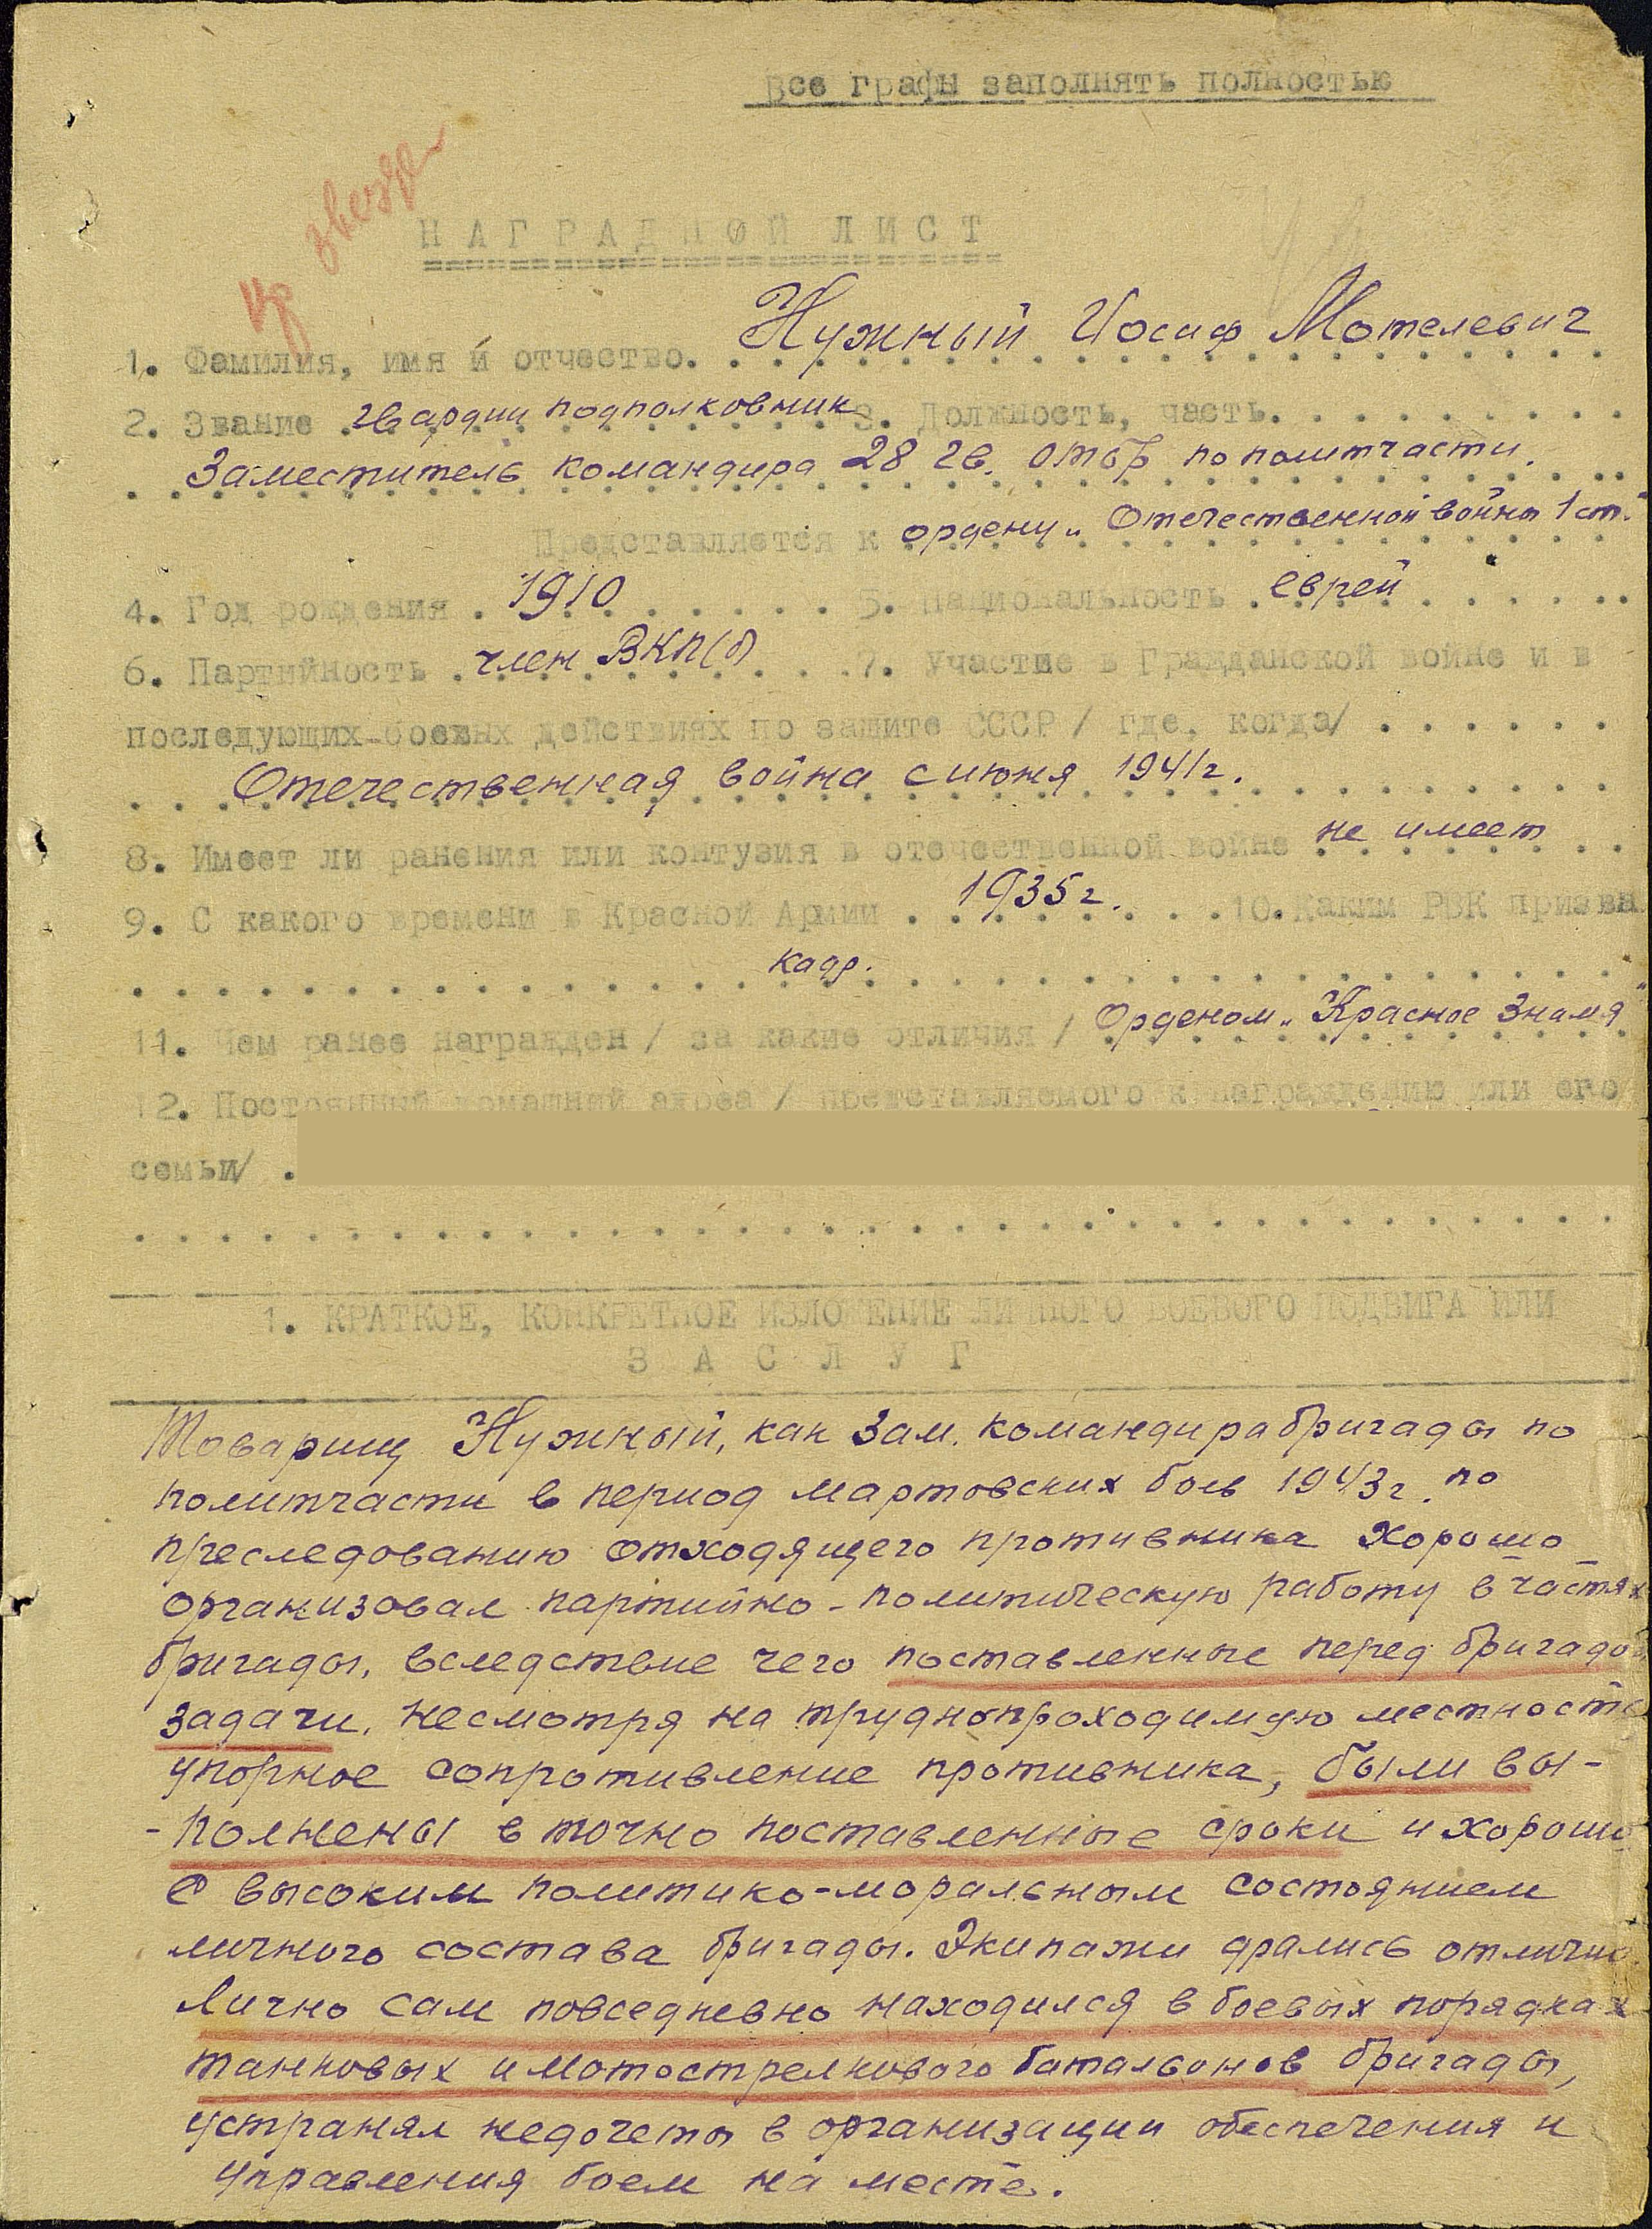 Все графы заполнять полностью
звезда
НАГРАДНОЙ ЛИСТ
1. Фамилия, имя и отчество. Нужный Иосиф Мотелевич
2. Звание гвардии подполковник 3. Должность, часть.
Заместитель командира 28 гв. отбр по политчасти.
Представляется к ордену „Отечественной войны 1 ст."
4. Год рождения . 1910 5. Национальность . еврей
6. Партийность . член ВКП(б) 7. Участие в Гражданской войне и в
последующих боевых действиях по защите СССР / где, когда/
Отечественная война с июня 1941г.
8. Имеет ли ранения или контузия в отечественной войне не имеет
9. С какого времени в Красной Армии . 1935г. 10. Каким РВК призва
кадр.
11. Чем ранее награжден / за какие отличия / Орденом „Красное Знамя"
12. Постоянный домашний адрес / представляемого к награждению или его
семьи/ .
1. КРАТКОЕ, КОНКРЕТНОЕ ИЗЛОЖЕНИЕ ЛИЧНОГО БОЕВОГО ПОДВИГА ИЛИ
ЗАСЛУГ
Товарищ Нужный, как зам. командира бригады по
политчасти в период мартовских боев 1943г. по
преследованию отходящего противника хорошо
организовал партийно-политическую работу в частях
бригады, вследствие чего поставленные перед бригадо
задачи, несмотря на труднопроходимую местность
упорное сопротивление противника, были вы-
-полнены в точно поставленные сроки и хорошо
с высоким политико-моральным состоянием
личного состава бригады. Экипажи дрались отлично
Лично сам повседневно находился в боевых порядках
танковых и мотострелкового батальонов бригады,
устранял недочеты в организации обеспечения и
управления боем на месте.